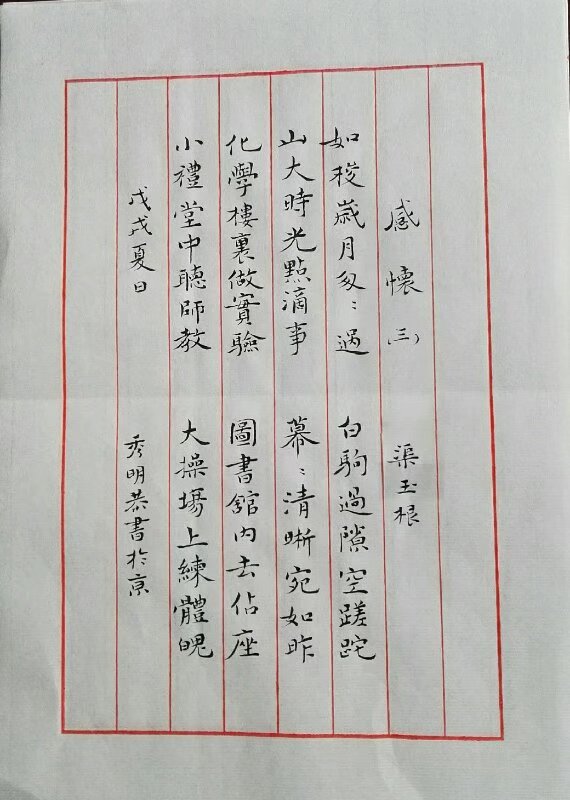 感懷(三) 渠玉根
如梭歲月匆:過 白駒過隙空蹉跎
山大時光點滴事 幕:清晰宛如昨
化學樓裏做實驗 圖書館内去佔座
小禮堂中聽師教 大操場上練體魄
戊戌夏日 秀明恭書於京